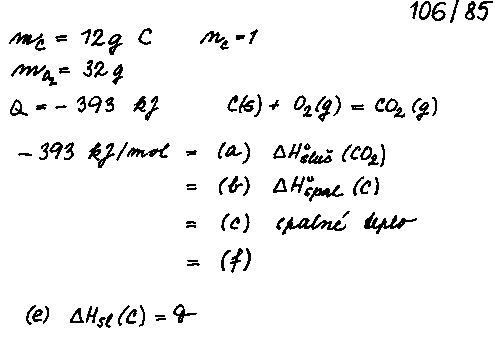 106/85
m_C = 12g C n_C = 1
m_O₂ = 32 g
Q = - 393 kJ C(s) + O₂(g) = CO₂(g)
- 393 kJ/mol = (a) ΔH°sluš (CO₂)
= (b) ΔH°spal (C)
= (c) spalné teplo
= (f)
(e) ΔHsl (C) =